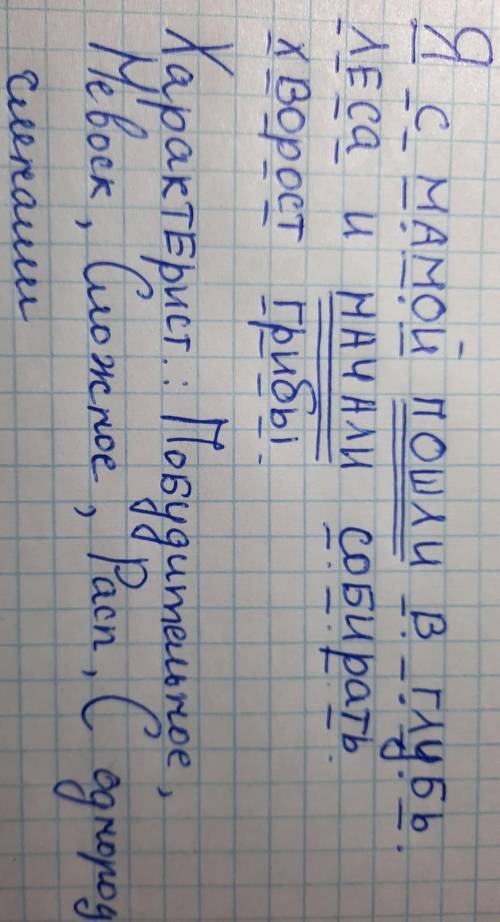 Я с мамой пошли в глубь
леса и начали собирать
хворост грибы.
Характерист.: Побудительное,
Невоск, Сложное, Расп, С однород
членами